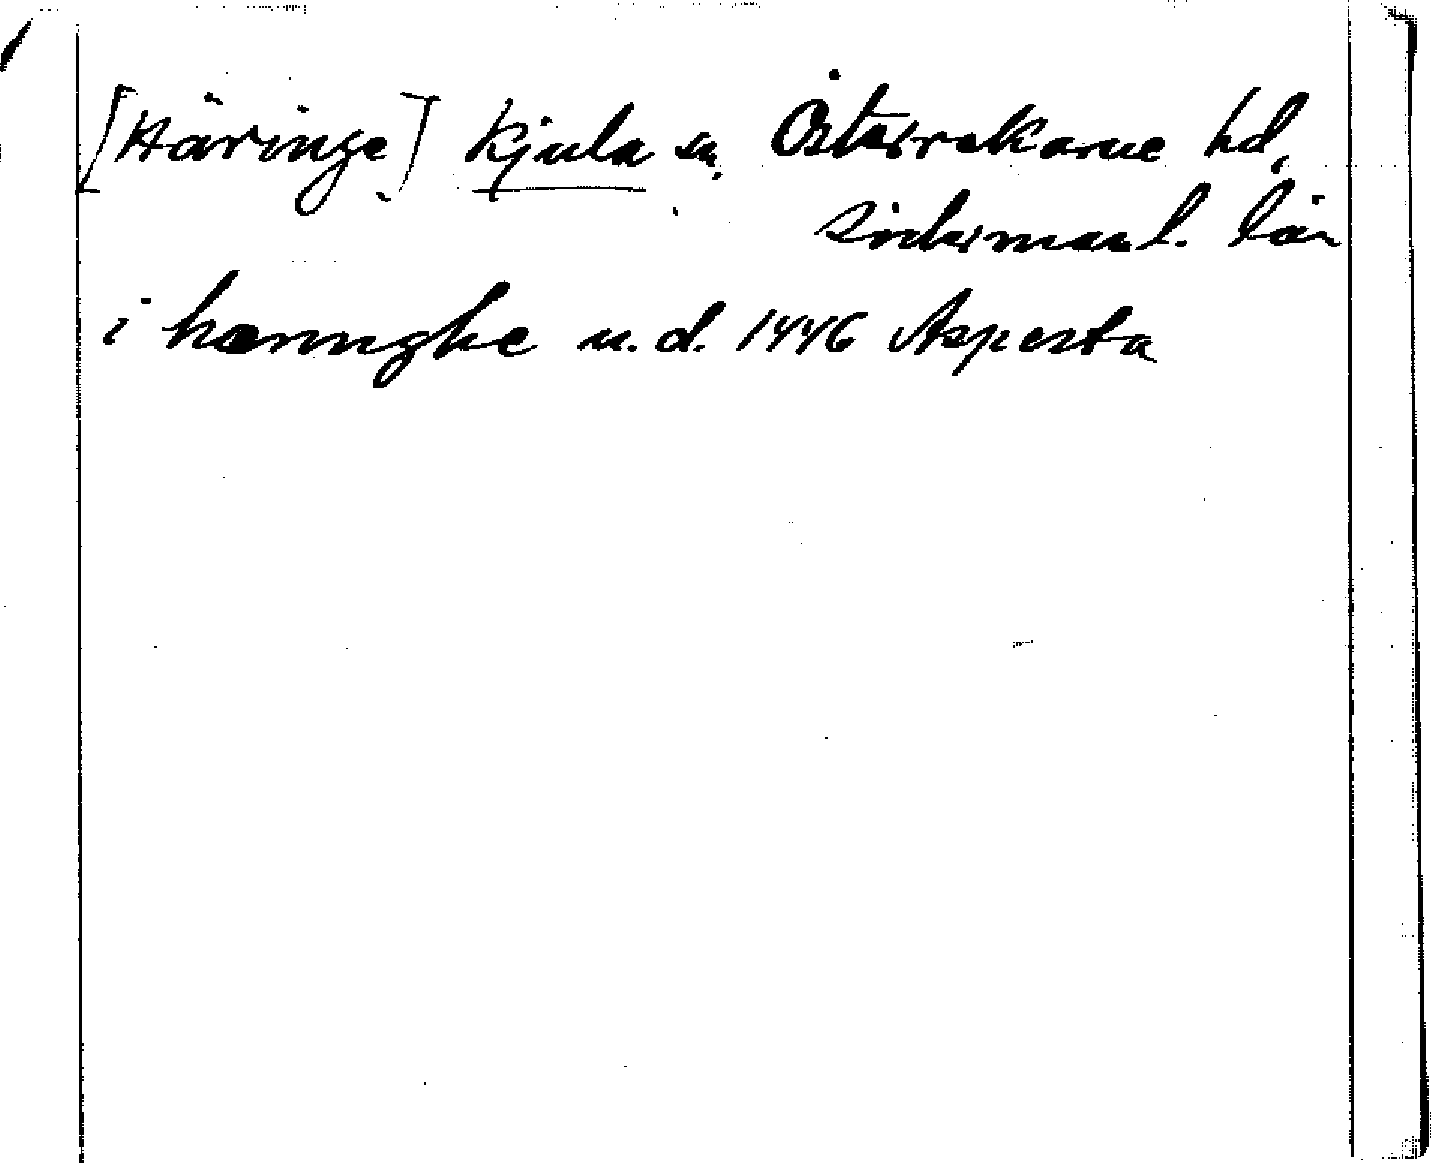 [Häringe] Kjula sn, Österrekarne hd,
Södermanl. län
i hæringhe u.d. 1446 Aspesta